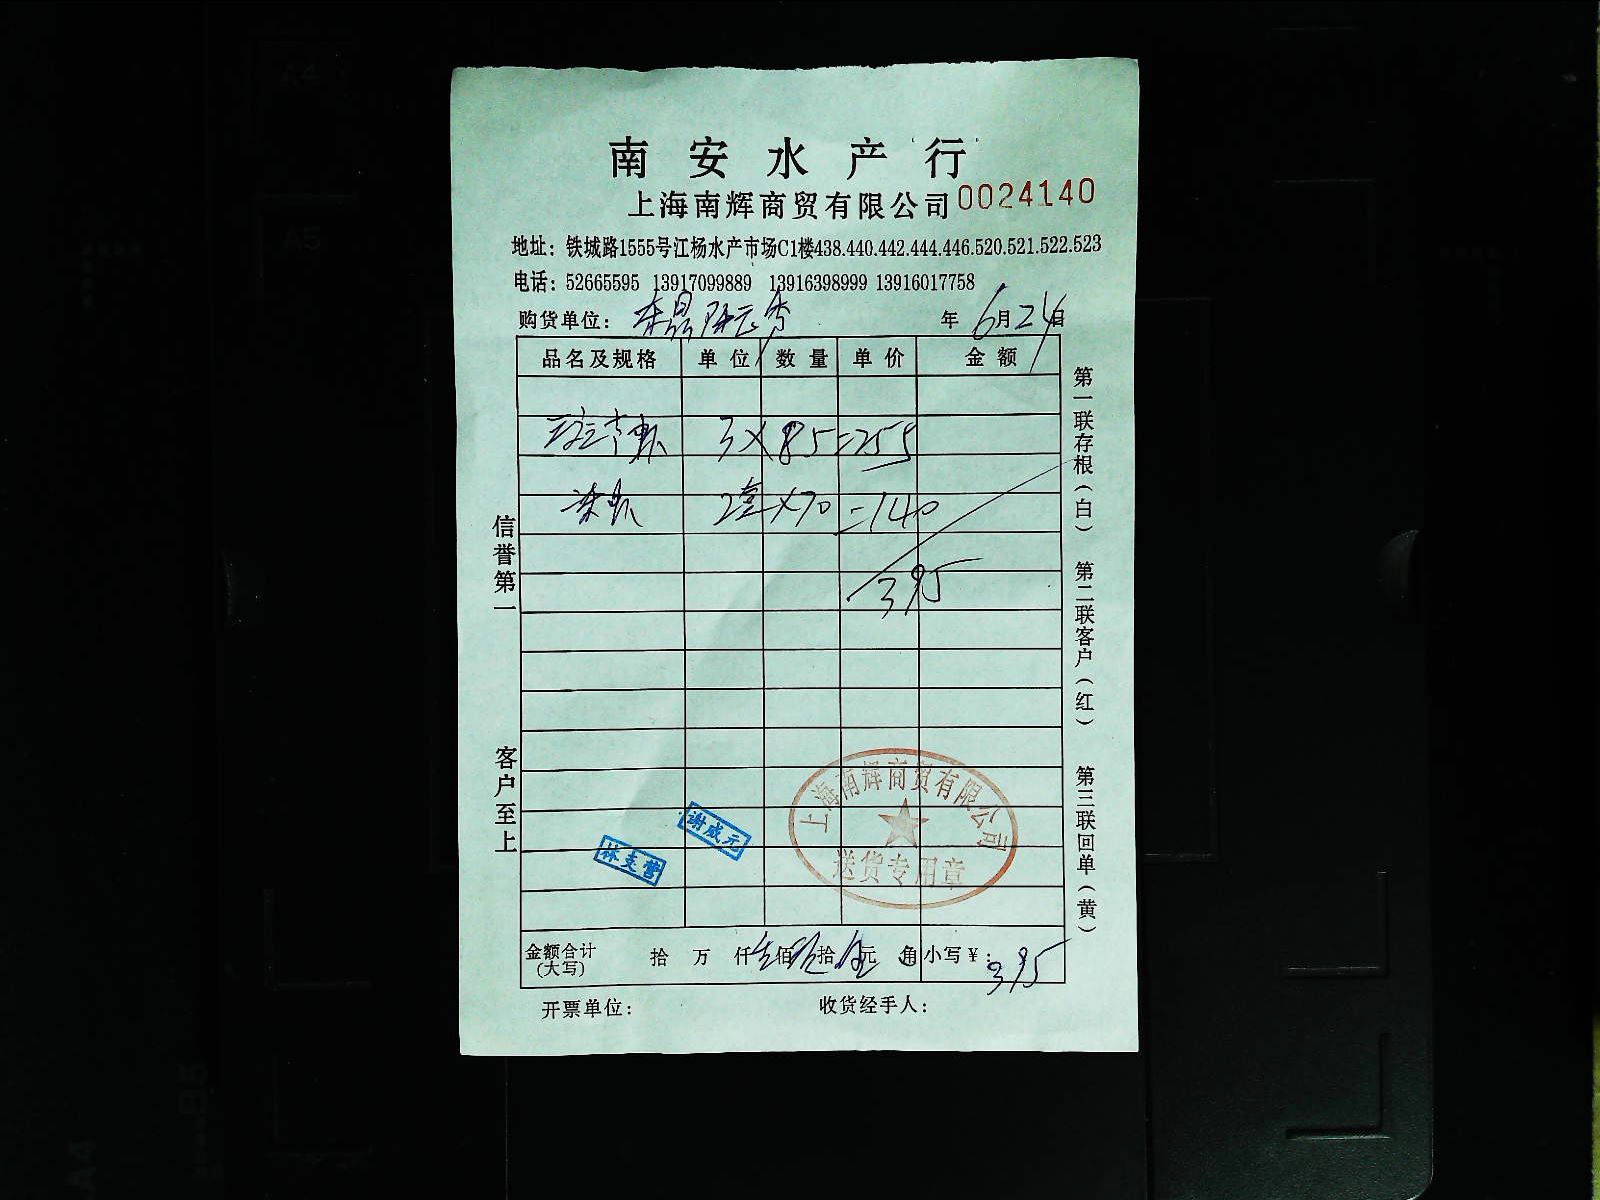 南安水产行
上海南辉商贸有限公司 0024140
地址：铁城路1555号江杨水产市场C1楼438.440.442.444.446.520.521.522.523
电话：52665595 13917099889 13916398999 13916017758
购货单位： 年 6月24日
品名及规格 单位 数量 单价 金额
3×85=255
2 ×70=140
395
信誉第一
客户至上
第一联存根（白） 第二联客户（红） 第三联回单（黄）
上海南辉商贸有限公司
送货专用章
谢成元
林支营
金额合计（大写） 拾 万 仟 佰 拾 元 角 小写￥：395
开票单位： 收货经手人：